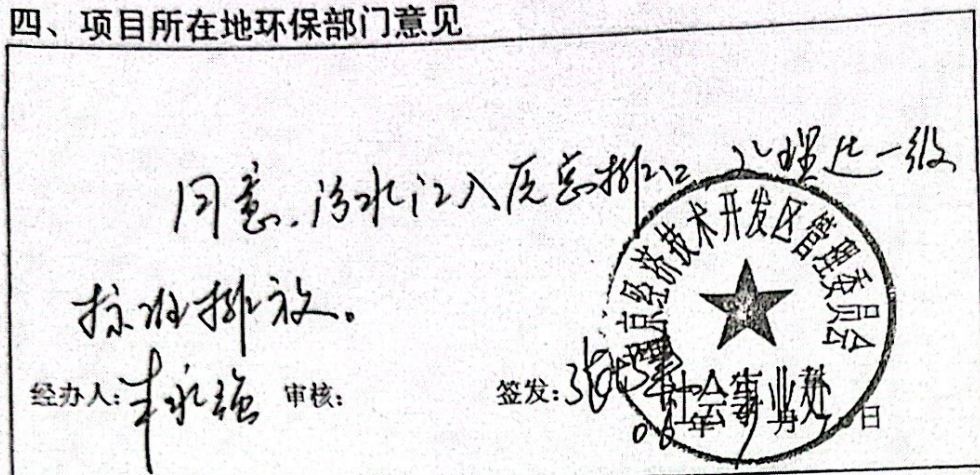 四、项目所在地环保部门意见
同意.污水汇入厂总排口 处理达一级
标准排放。
京经济技术开发区管理委员会
社会事业处
经办人: 审核: 签发:
年 月 日